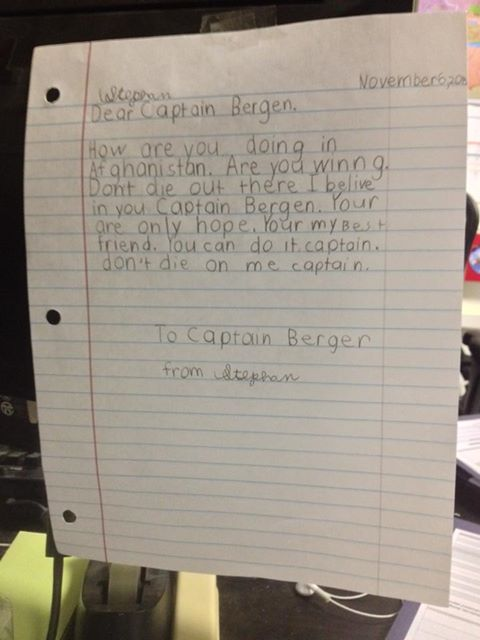 Stephan
November 6, 20
Dear Captain Bergen.
How are you doing in
Afghanistan. Are you winng.
Dont die out there I belive
in you Captain Bergen. Your
are only hope. Your my Best
friend. You can do it captain.
don't die on me captain.
To Captain Berger
from Stephan